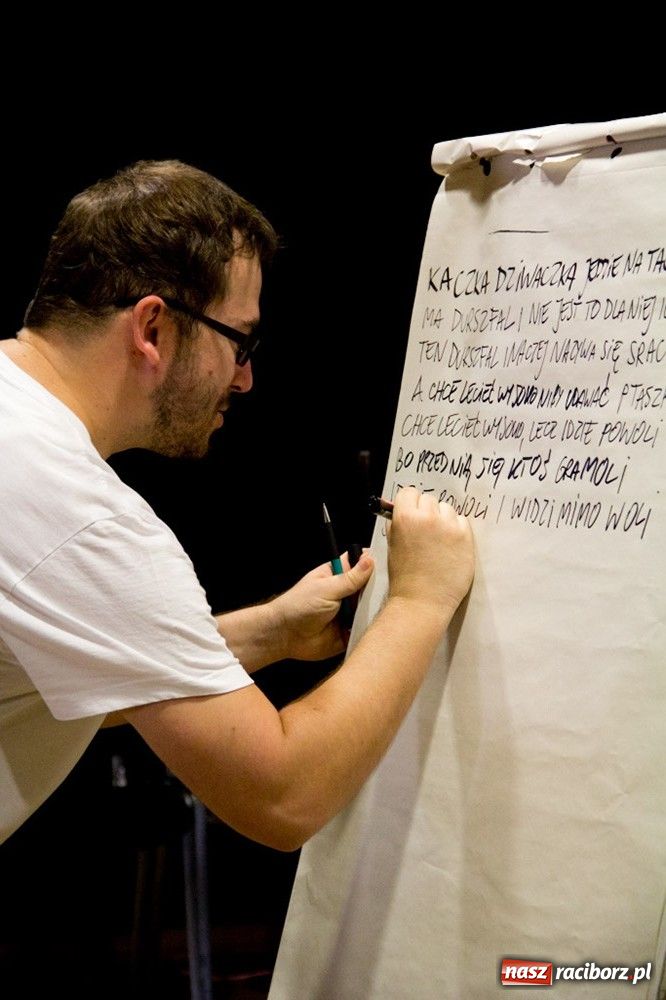 KACZKA DZIWACZKA JEDZIE NA
MA DURSZFAL I NIE JEST TO DLA NIEJ
TEN DURSZFAL INACZEJ NAZYWA SIĘ
A CHCE LECIEĆ WYSOKO NIBY UDAWAĆ
CHCE LECIEĆ WYSOKO, LECZ IDZIE POWOLI
BO PRZED NIĄ SIĘ KTOŚ GRAMOLI
POWOLI I WIDZI MIMO WOLI
nasz raciborz.pl